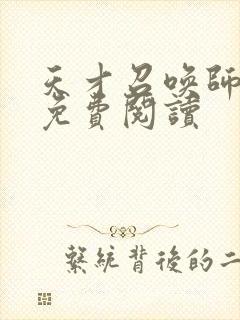 天才召喚師
免費閱讀
繫統背後的二